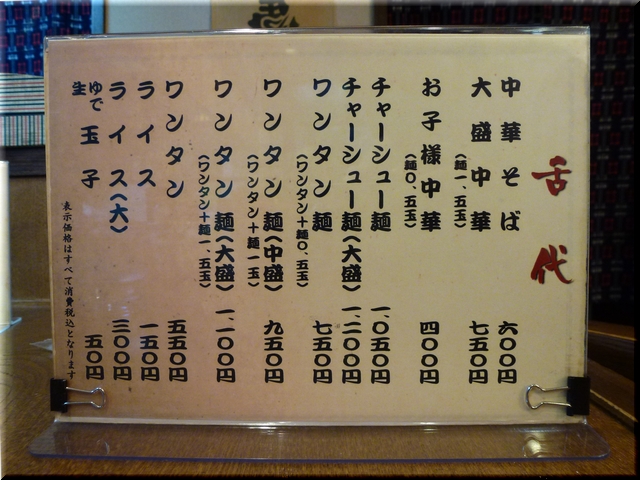 舌代
中華そば 六〇〇円
大盛中華 七五〇円
(麺一、五玉)
お子様中華 四〇〇円
(麺〇、五玉)
チャーシュー麺 一、〇五〇円
チャーシュー麺(大盛) 一、二〇〇円
ワンタン麺 七五〇円
(ワンタン+麺〇、五玉)
ワンタン麺(中盛) 九五〇円
(ワンタン+麺一玉)
ワンタン麺(大盛) 一、一〇〇円
(ワンタン+麺一、五玉)
ワンタン 五五〇円
ライス 一五〇円
ライス(大) 三〇〇円
ゆで
生 玉子 五〇円
表示価格はすべて消費税込となります